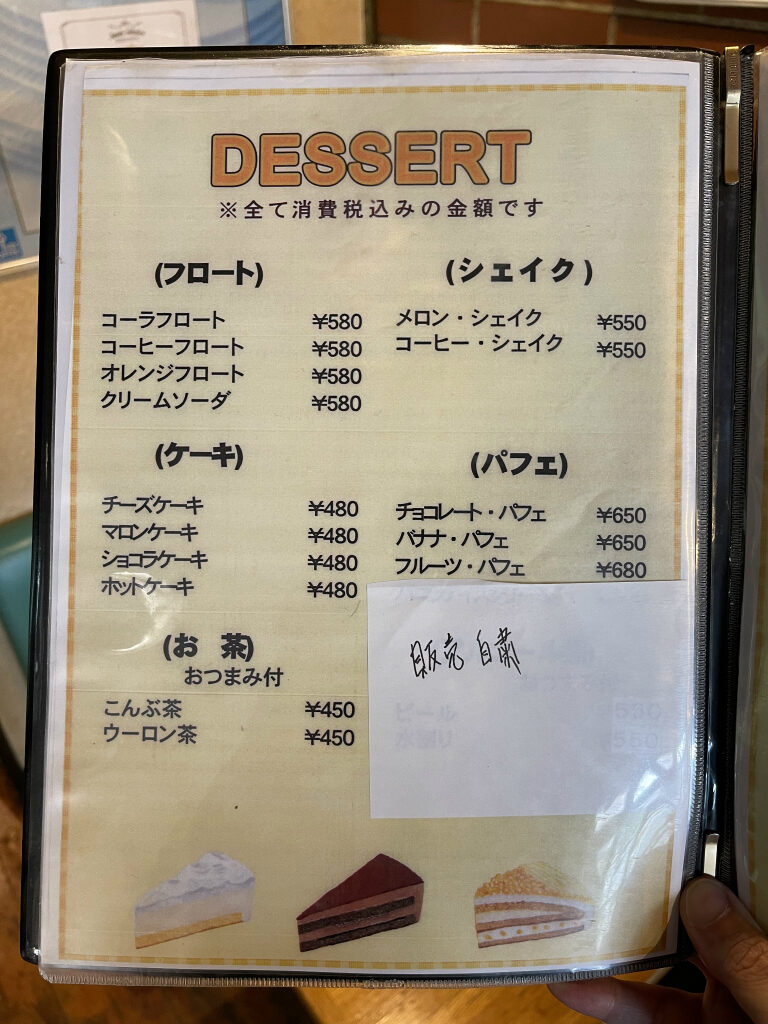 DESSERT
※全て消費税込みの金額です
(フロート)
コーラフロート ¥580
コーヒーフロート ¥580
オレンジフロート ¥580
クリームソーダ ¥580
(シェイク)
メロン・シェイク ¥550
コーヒー・シェイク ¥550
(ケーキ)
チーズケーキ ¥480
マロンケーキ ¥480
ショコラケーキ ¥480
ホットケーキ ¥480
(パフェ)
チョコレート・パフェ ¥650
バナナ・パフェ ¥650
フルーツ・パフェ ¥680
(お 茶)
おつまみ付
こんぶ茶 ¥450
ウーロン茶 ¥450
販売 自粛
ビール
水割り